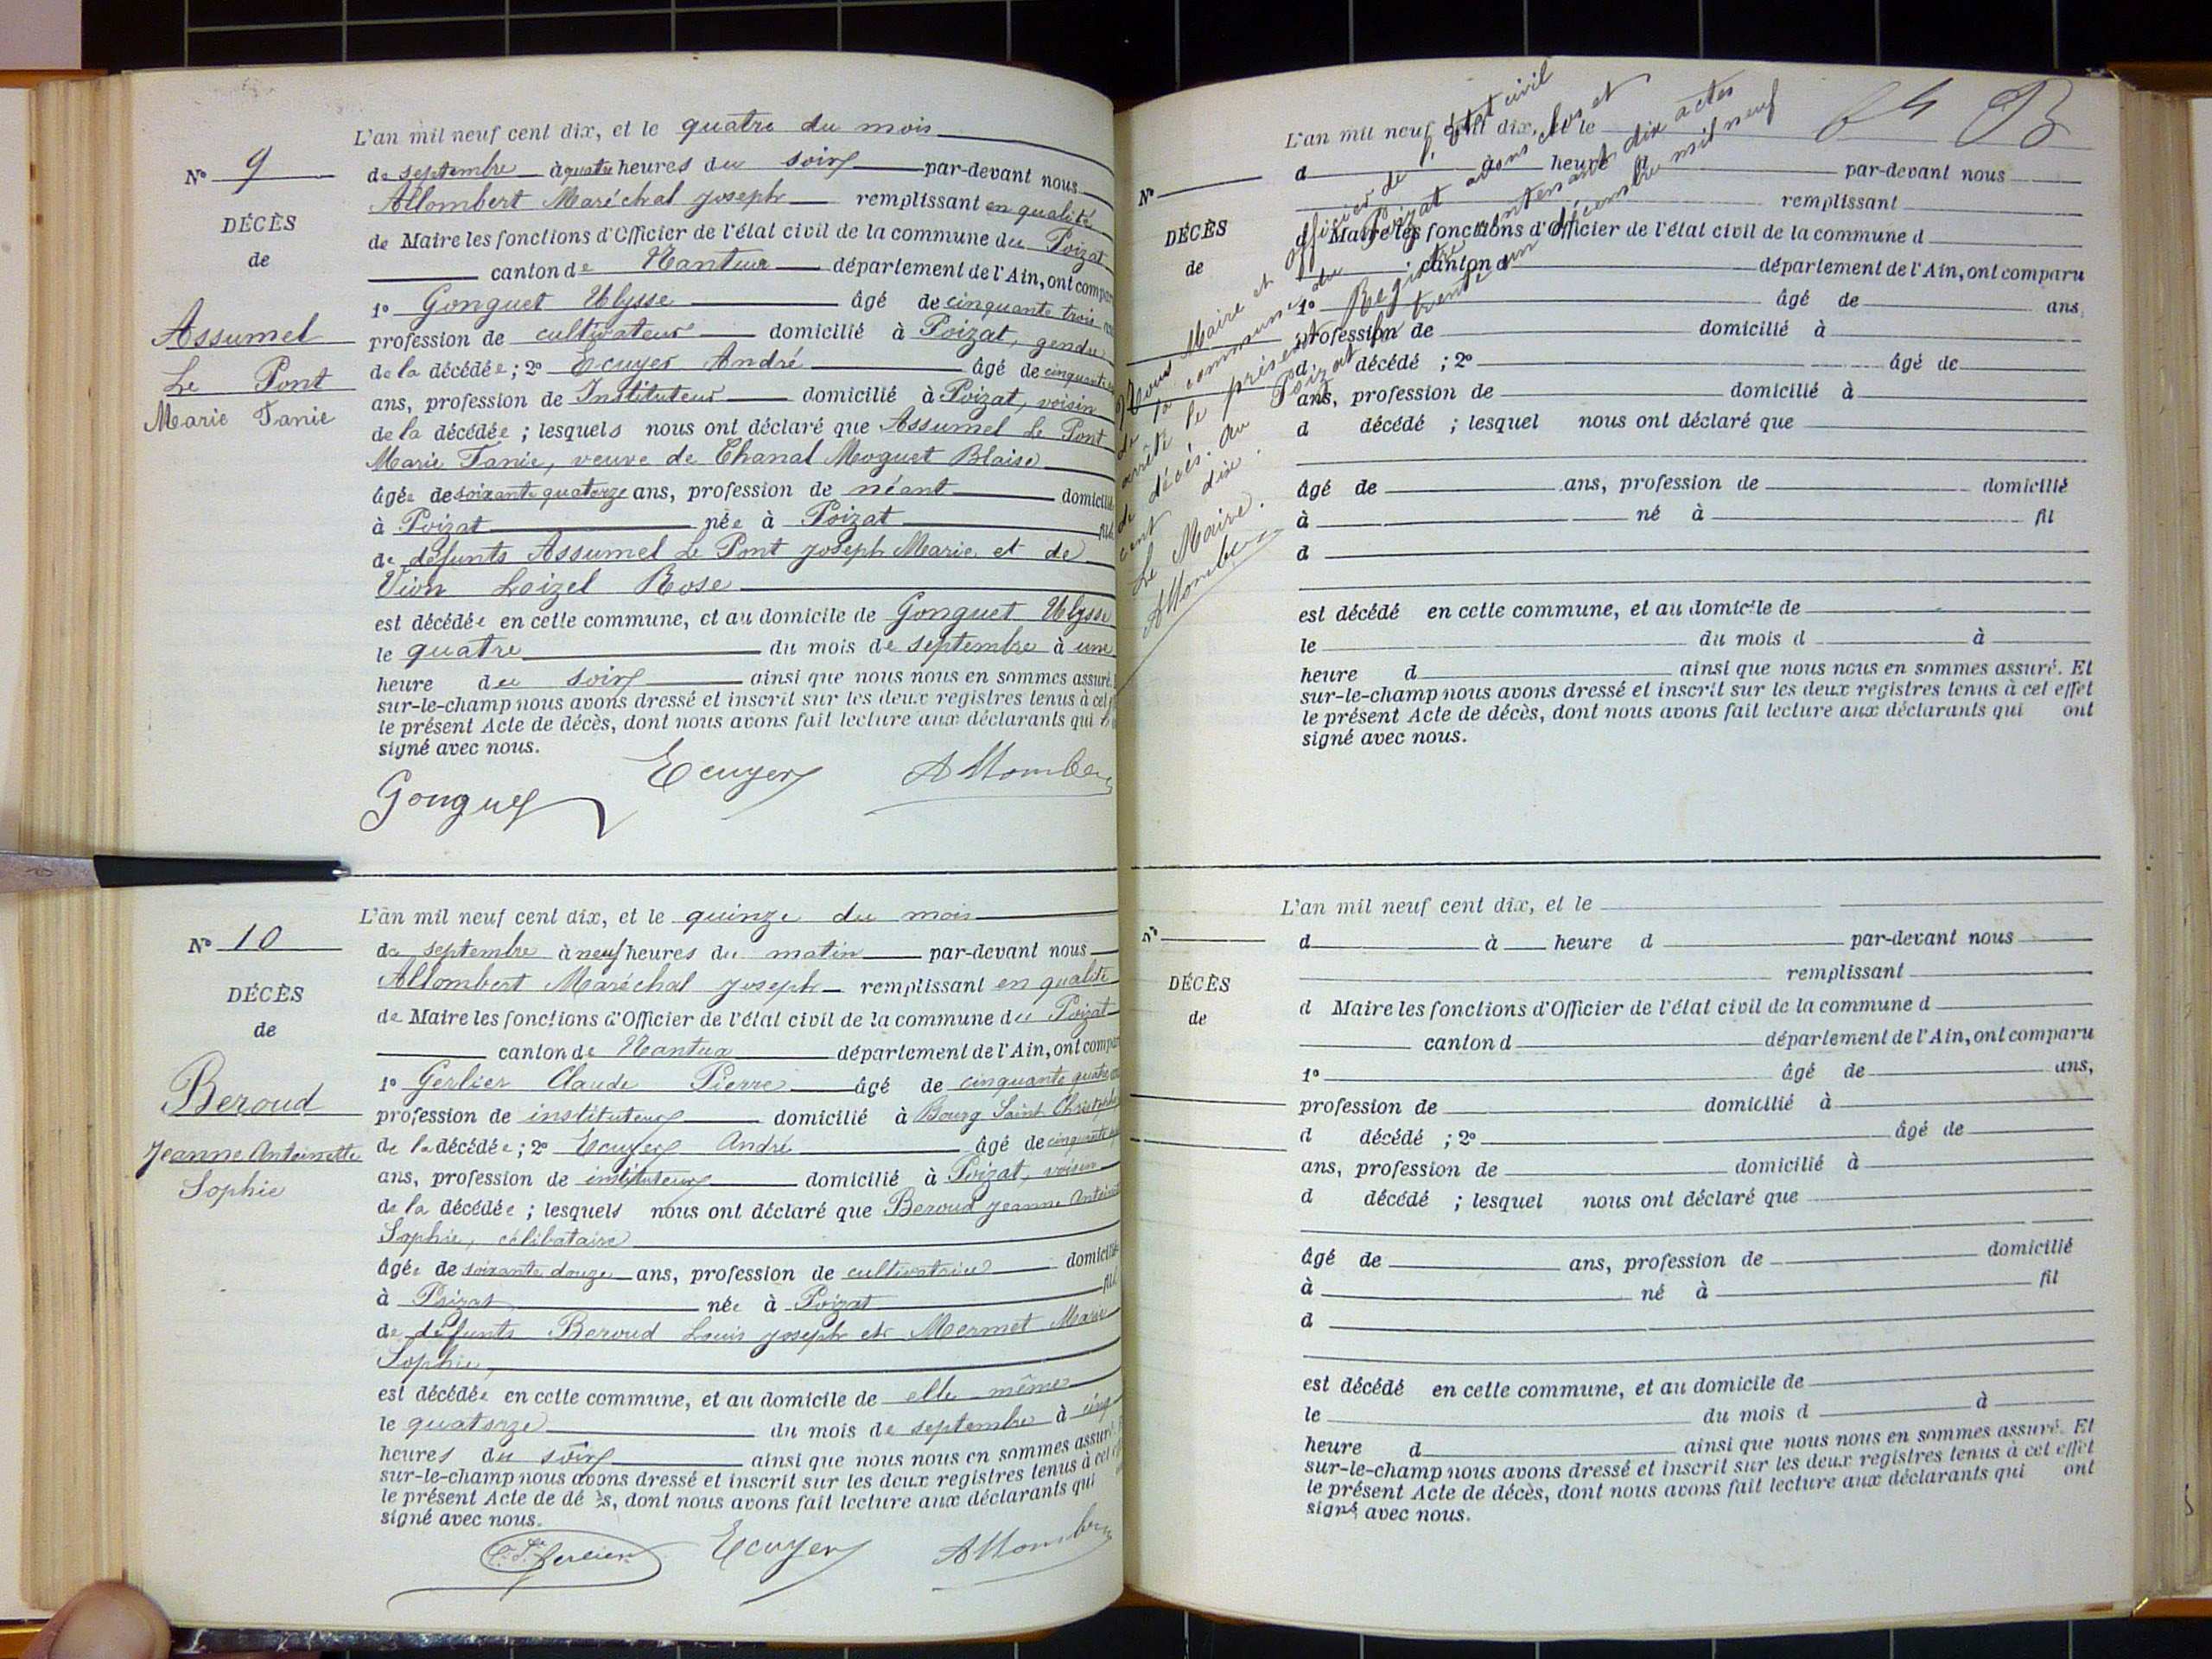 L'an mil neuf cent dix, et le quatre du mois
N° 9
de septembre à quatre heures du soir par-devant nous
Allombert Maréchal Joseph remplissant en qualité
DÉCÈS
de
de Maire les fonctions d'Officier de l'état civil de la commune du Poizat
canton de Nantua département de l'Ain, ont compar
1° Gonguet Ulysse âgé de cinquante trois
Assumel
Le Pont
Marie Tanie
profession de cultivateur domicilié à Poizat, gendre
de la décédée ; 2° Ecuyer André âgé de cinquante
ans, profession de Instituteur domicilié à Poizat, voisin
de la décédée ; lesquels nous ont déclaré que Assumel Le Pont
Marie Tanie, veuve de Chanal Moguet Blaise
âgée de soixante quatorze ans, profession de néant domiciliée
à Poizat née à Poizat
de défunts Assumel Le Pont Joseph Marie et de
Vion Loizel Rose
est décédée en cette commune, et au domicile de Gonguet Ulysse
le quatre du mois de septembre à une
heure du soir ainsi que nous nous en sommes assuré.
sur-le-champ nous avons dressé et inscrit sur les deux registres tenus à cet
le présent Acte de décès, dont nous avons fait lecture aux déclarants qui
signé avec nous.
Gonguet Ecuyer Allombert
L'an mil neuf cent dix, et le quinze du mois
N° 10
de septembre à neuf heures du matin par-devant nous
Allombert Maréchal Joseph remplissant en qualité
DÉCÈS
de
de Maire les fonctions d'Officier de l'état civil de la commune du Poizat
canton de Nantua département de l'Ain, ont compar
1° Gerlier Claude Pierre âgé de cinquante quatre
Beroud
Jeanne Antoinette
Sophie
profession de instituteur domicilié à Bourg Saint Christophe
de la décédée ; 2° Ecuyer André âgé de cinquante
ans, profession de instituteur domicilié à Poizat, voisin
de la décédée ; lesquels nous ont déclaré que Beroud Jeanne Antoinette
Sophie, célibataire
âgée de soixante douze ans, profession de cultivatrice domiciliée
à Poizat née à Poizat
de défunts Beroud Louis Joseph et Mermet Marie
Sophie,
est décédée en cette commune, et au domicile de elle-même
le quatorze du mois de septembre à cinq
heures du soir ainsi que nous nous en sommes assuré.
sur-le-champ nous avons dressé et inscrit sur les deux registres tenus à cet
le présent Acte de décès, dont nous avons fait lecture aux déclarants qui
signé avec nous.
C. P. Gerlier Ecuyer Allombert
Nous Maire et officier de l'état civil
de la commune du Poizat avons clos et
arrêté le présent Registre contenant dix actes
de décès. Au Poizat le trente un décembre mil neuf
cent dix.
Le Maire.
Allombert
L'an mil neuf cent dix, et le
N°
d à heure d par-devant nous
remplissant
DÉCÈS
de
d Maire les fonctions d'Officier de l'état civil de la commune d
canton d département de l'Ain, ont comparu
1° âgé de ans,
profession de domicilié à
d décédé ; 2° âgé de
ans, profession de domicilié à
d décédé ; lesquel nous ont déclaré que
âgé de ans, profession de domicilié
à né à fil
d
est décédé en cette commune, et au domicile de
le du mois d à
heure d ainsi que nous nous en sommes assuré. Et
sur-le-champ nous avons dressé et inscrit sur les deux registres tenus à cet effet
le présent Acte de décès, dont nous avons fait lecture aux déclarants qui ont
signé avec nous.
L'an mil neuf cent dix, et le
N°
d à heure d par-devant nous
remplissant
DÉCÈS
de
d Maire les fonctions d'Officier de l'état civil de la commune d
canton d département de l'Ain, ont comparu
1° âgé de ans,
profession de domicilié à
d décédé ; 2° âgé de
ans, profession de domicilié à
d décédé ; lesquel nous ont déclaré que
âgé de ans, profession de domicilié
à né à fil
d
est décédé en cette commune, et au domicile de
le du mois d à
heure d ainsi que nous nous en sommes assuré. Et
sur-le-champ nous avons dressé et inscrit sur les deux registres tenus à cet effet
le présent Acte de décès, dont nous avons fait lecture aux déclarants qui ont
signé avec nous.